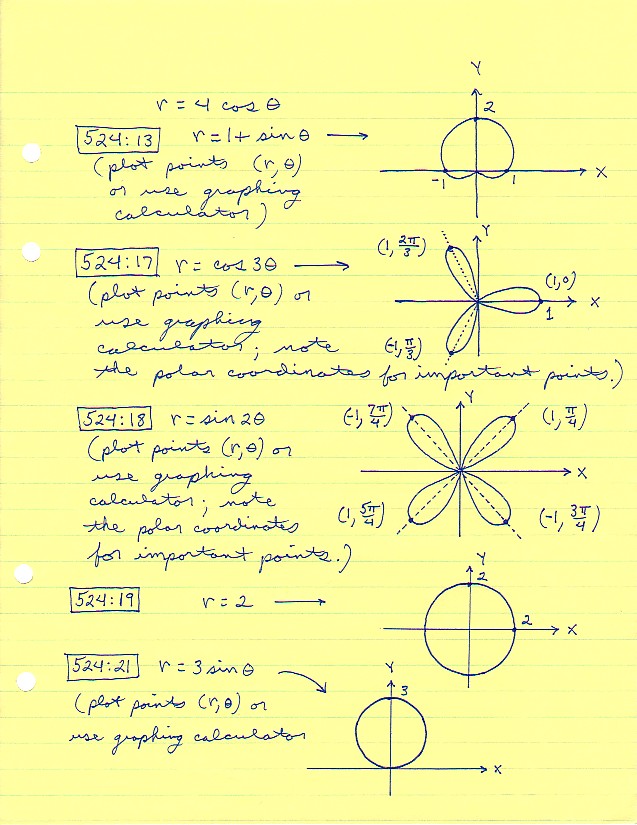 r = 4 cos θ
524:13 r = 1 + sin θ →
(plot points (r, θ)
or use graphing
calculator)
Y
2
-1
1
X
524:17 r = cos 3θ →
(plot points (r, θ) or
use graphing
calculator; note
the polar coordinates for important points.)
(1, 2π/3)
Y
(1, 0)
X
1
(-1, π/3)
524:18 r = sin 2θ
(plot points (r, θ) or
use graphing
calculator; note
the polar coordinates
for important points.)
(-1, 7π/4)
Y
(1, π/4)
X
(1, 5π/4)
(-1, 3π/4)
524:19 r = 2 →
Y
2
2
X
524:21 r = 3 sin θ
(plot points (r, θ) or
use graphing calculator
Y
3
X